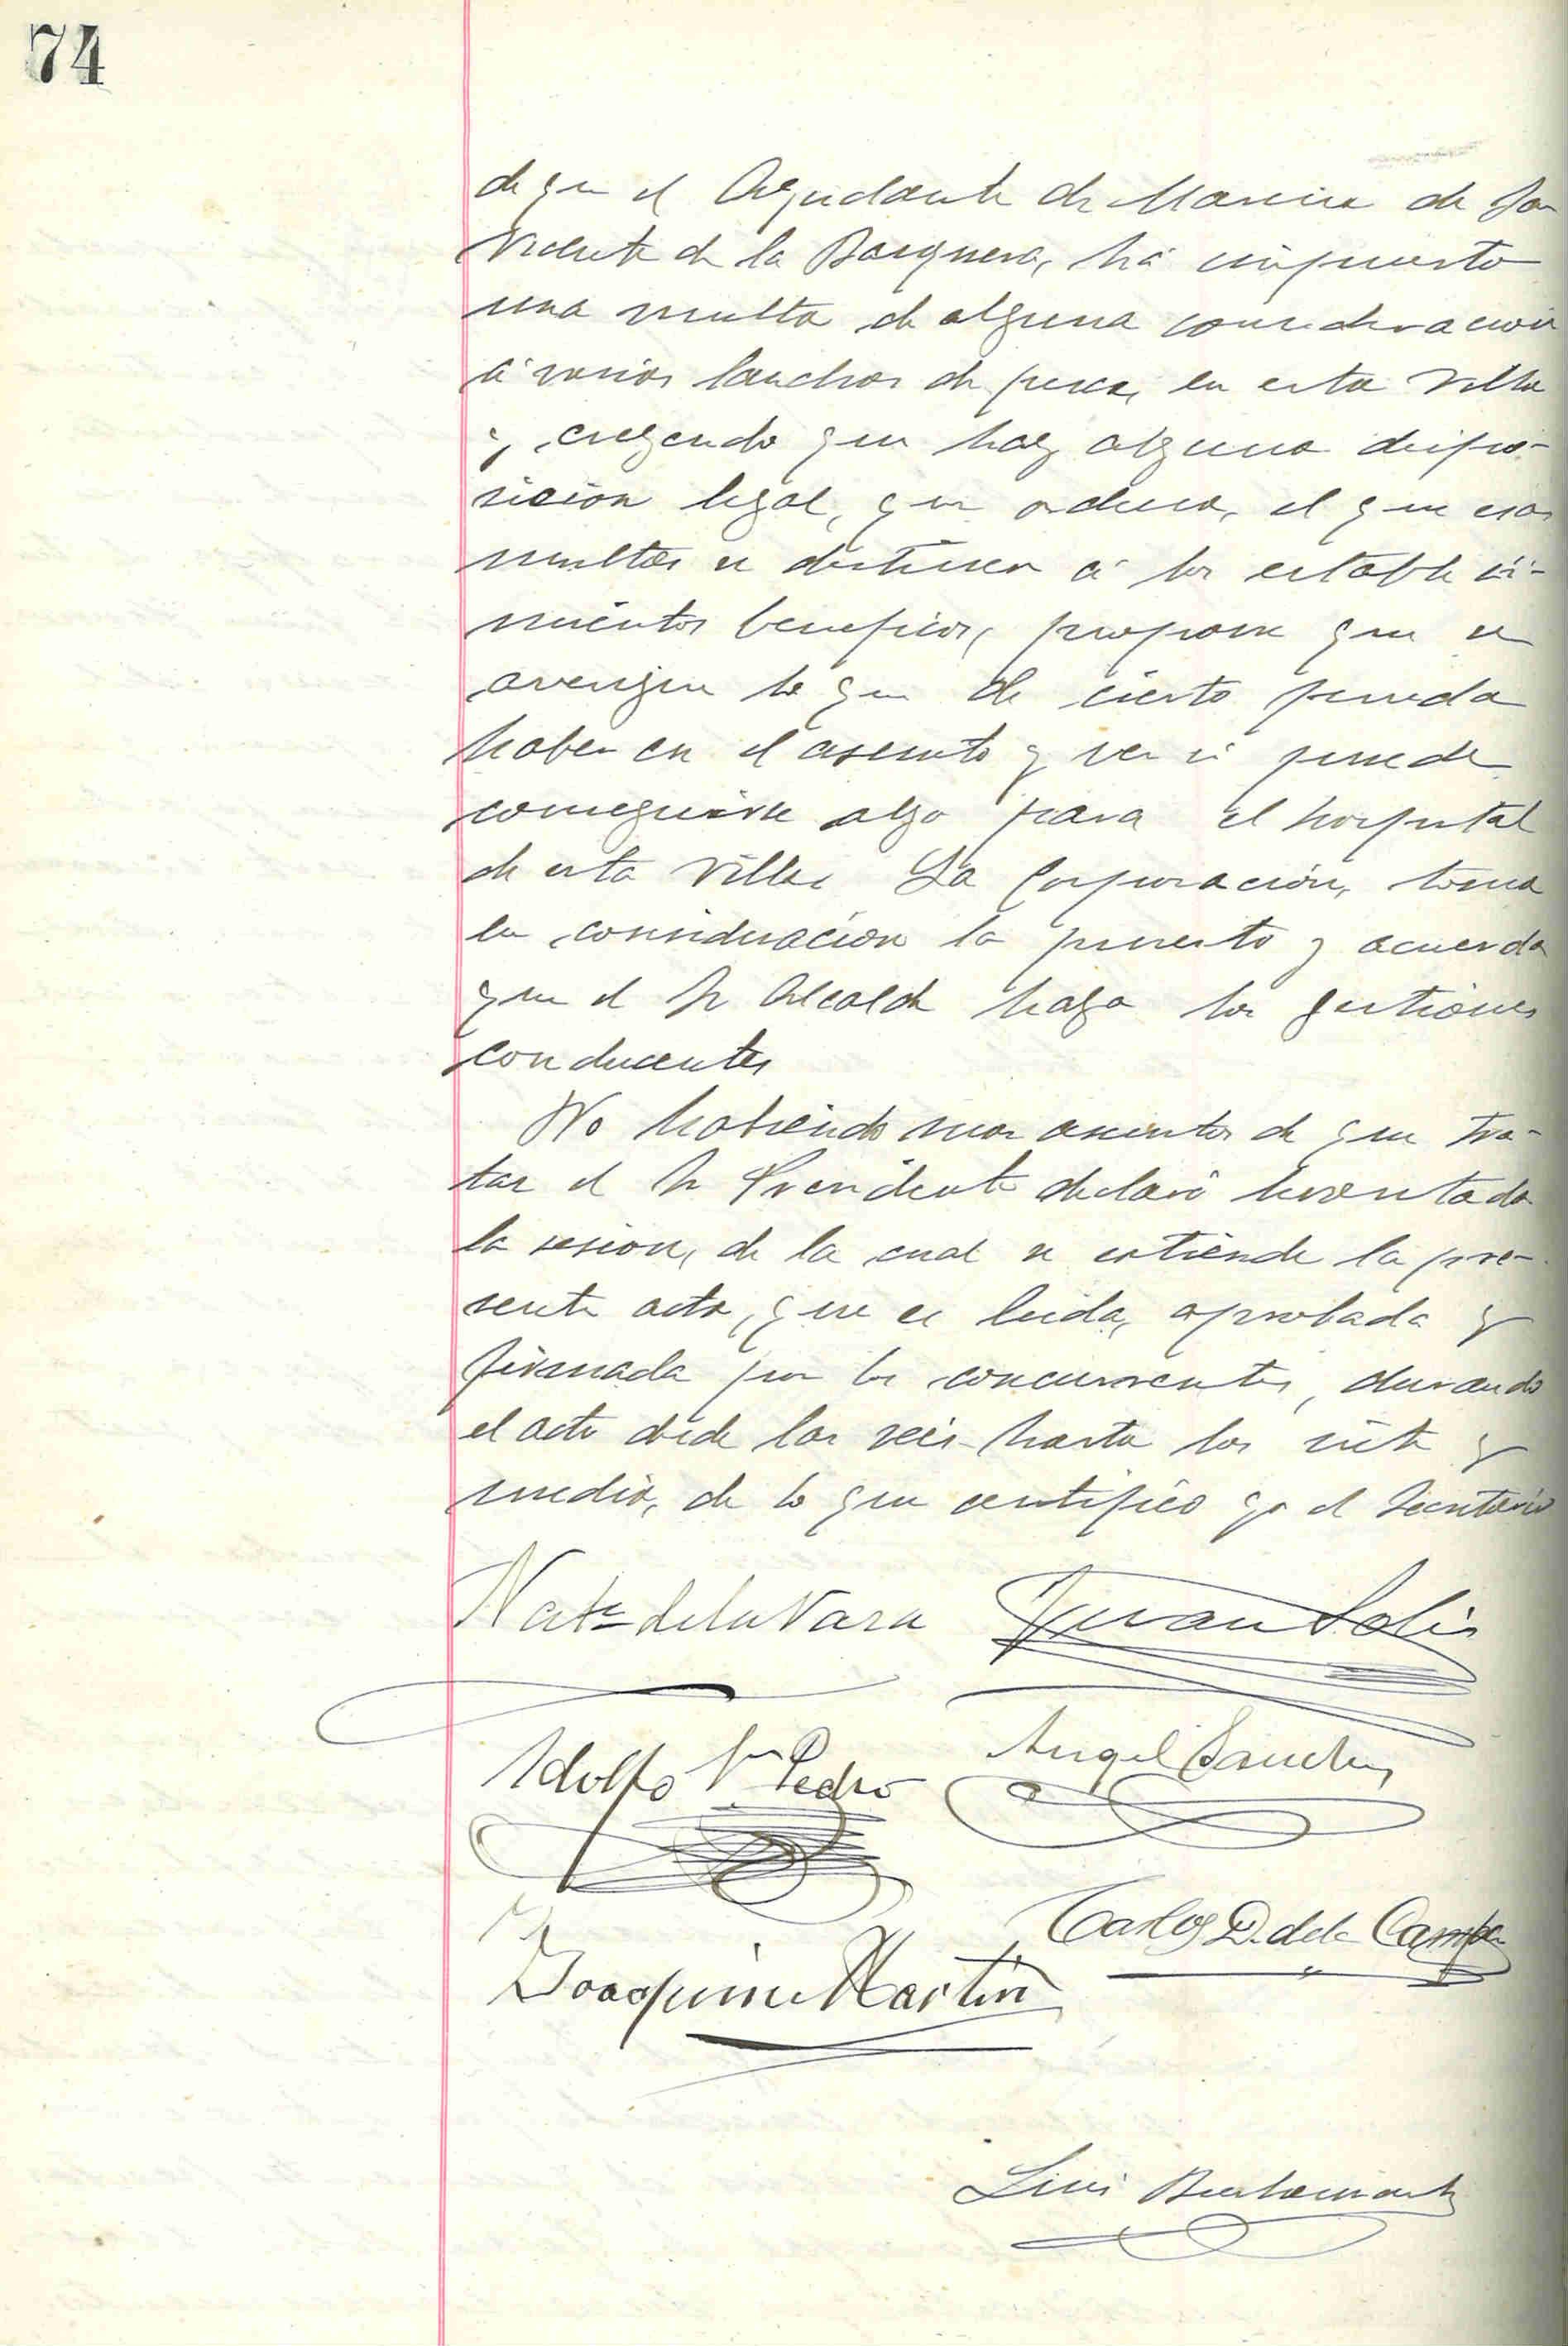 74
de que el Ayudante de Marina de San
Vicente de la Barquera, há impuesto
una multa de alguna consideracion
á varias lanchas de pesca, en esta villa
y, creyendo que hay alguna dispo-
sicion legal, que ordena, el que esas
multas se destinen á los estableci-
mientos beneficos, propone que se
averigüe lo que de cierto pueda
haber en el asunto y ver si puede
conseguirse algo para el hospital
de esta villa. La Corporación, toma
en consideración lo puesto y acuerda
que el Sr Alcalde haga las gestiones
conducentes
No habiendo mas asuntos de que tra-
tar el Sr Presidente declaró levantada
la sesion, de la cual se extiende la pre-
sente acta, que es leida, aprobada y
firmada por los concurrentes, durando
el acto desde las seis hasta las siete y
media, de lo que certifico yo el Secretario
de la Vara Juan Solis
Adolfo Sn Pedro Angel Sanchez
Carlos D. de la Campa
Joaquin Martin
Luis